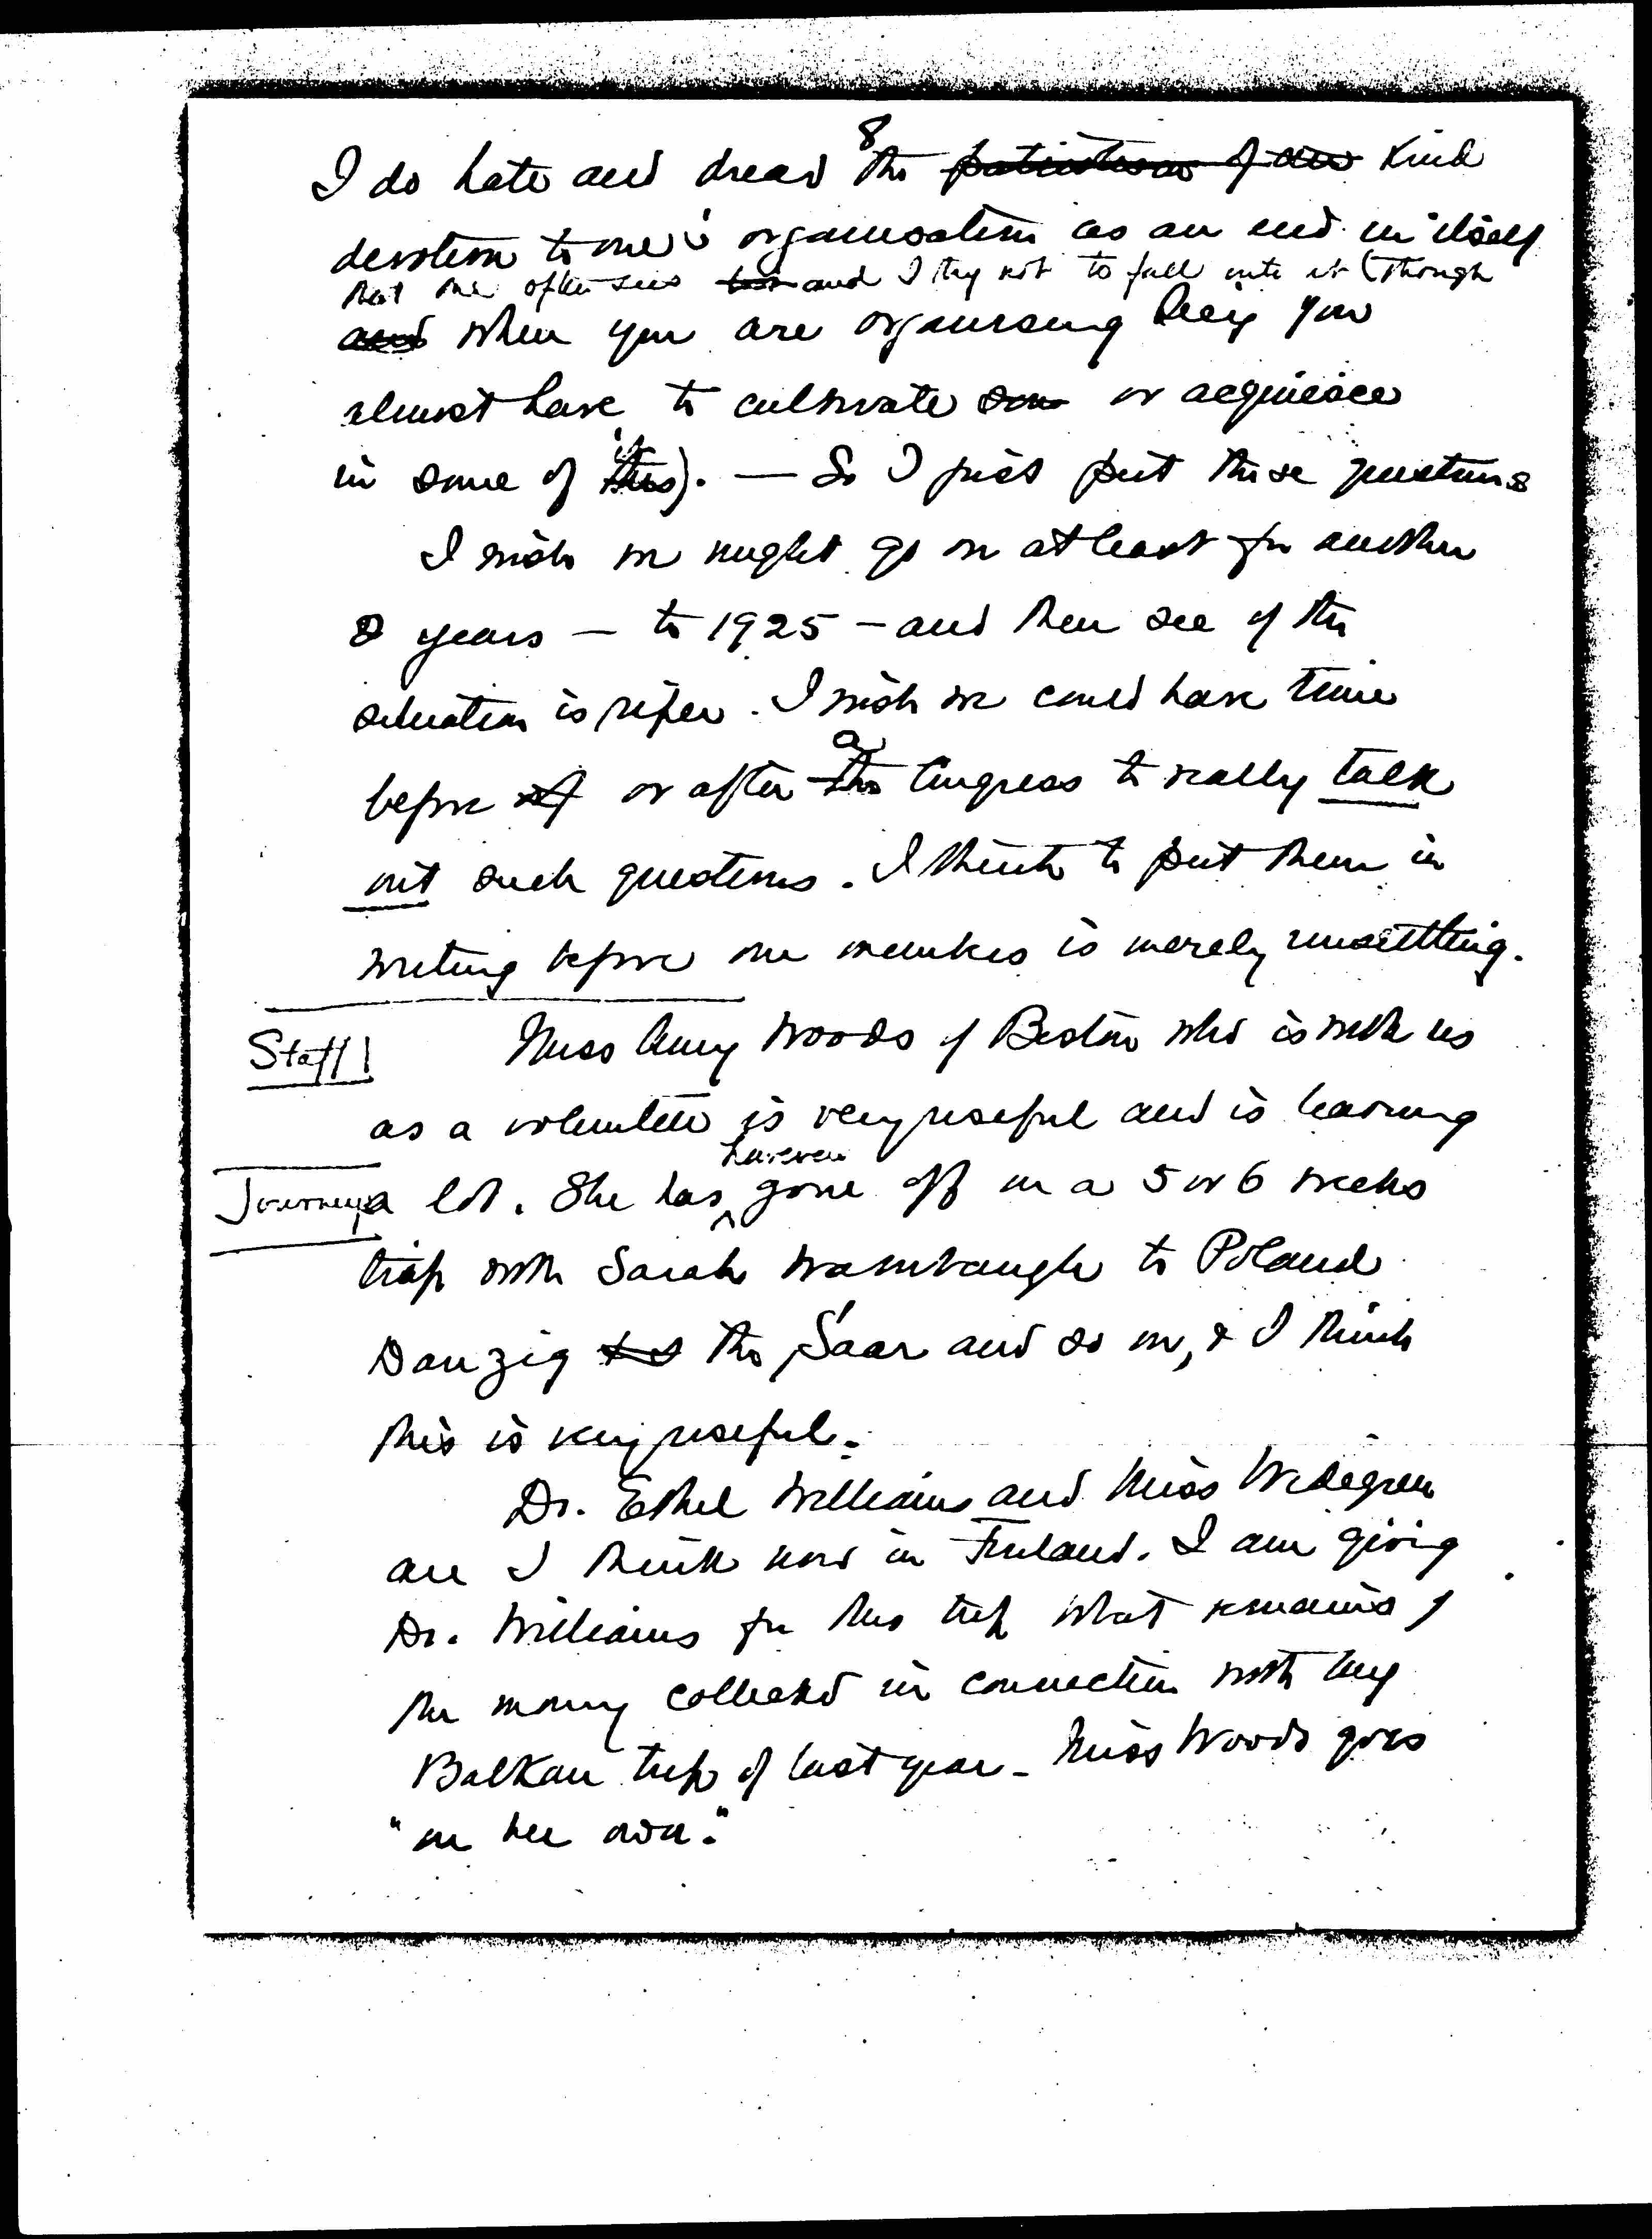 8
I do hate and dread the patriotism of an kind
devotion to one's organisation as an end in itself
that one often sees and I try not to fall into it (though
and when you are organising hey you
almost have to cultivate some or acquiesce
in some of this it). — So I just put these questions
I wish we might go on at least for another
2 years — to 1925 — and then see if the
situation is riper. I wish we could have time
before or after the a Congress to really talk
out such questions. I think to put them in
writing before our members is merely unsettling.
Staff! Miss Amy Woods of Boston who is with us
as a volunteer is very useful and is learning
Journeys a lot. She has however gone off on a 5 or 6 weeks
trip with Sarah Wambaugh to Poland
Danzig the Saar and so on, & I think
this is very useful.
Dr. Ethel Williams and Miss Widegren
are I think now in Finland. I am giving
Dr. Williams for this trip what remains of
the money collected in connection with my
Balkan trip of last year – Miss Woods goes
"on her own."